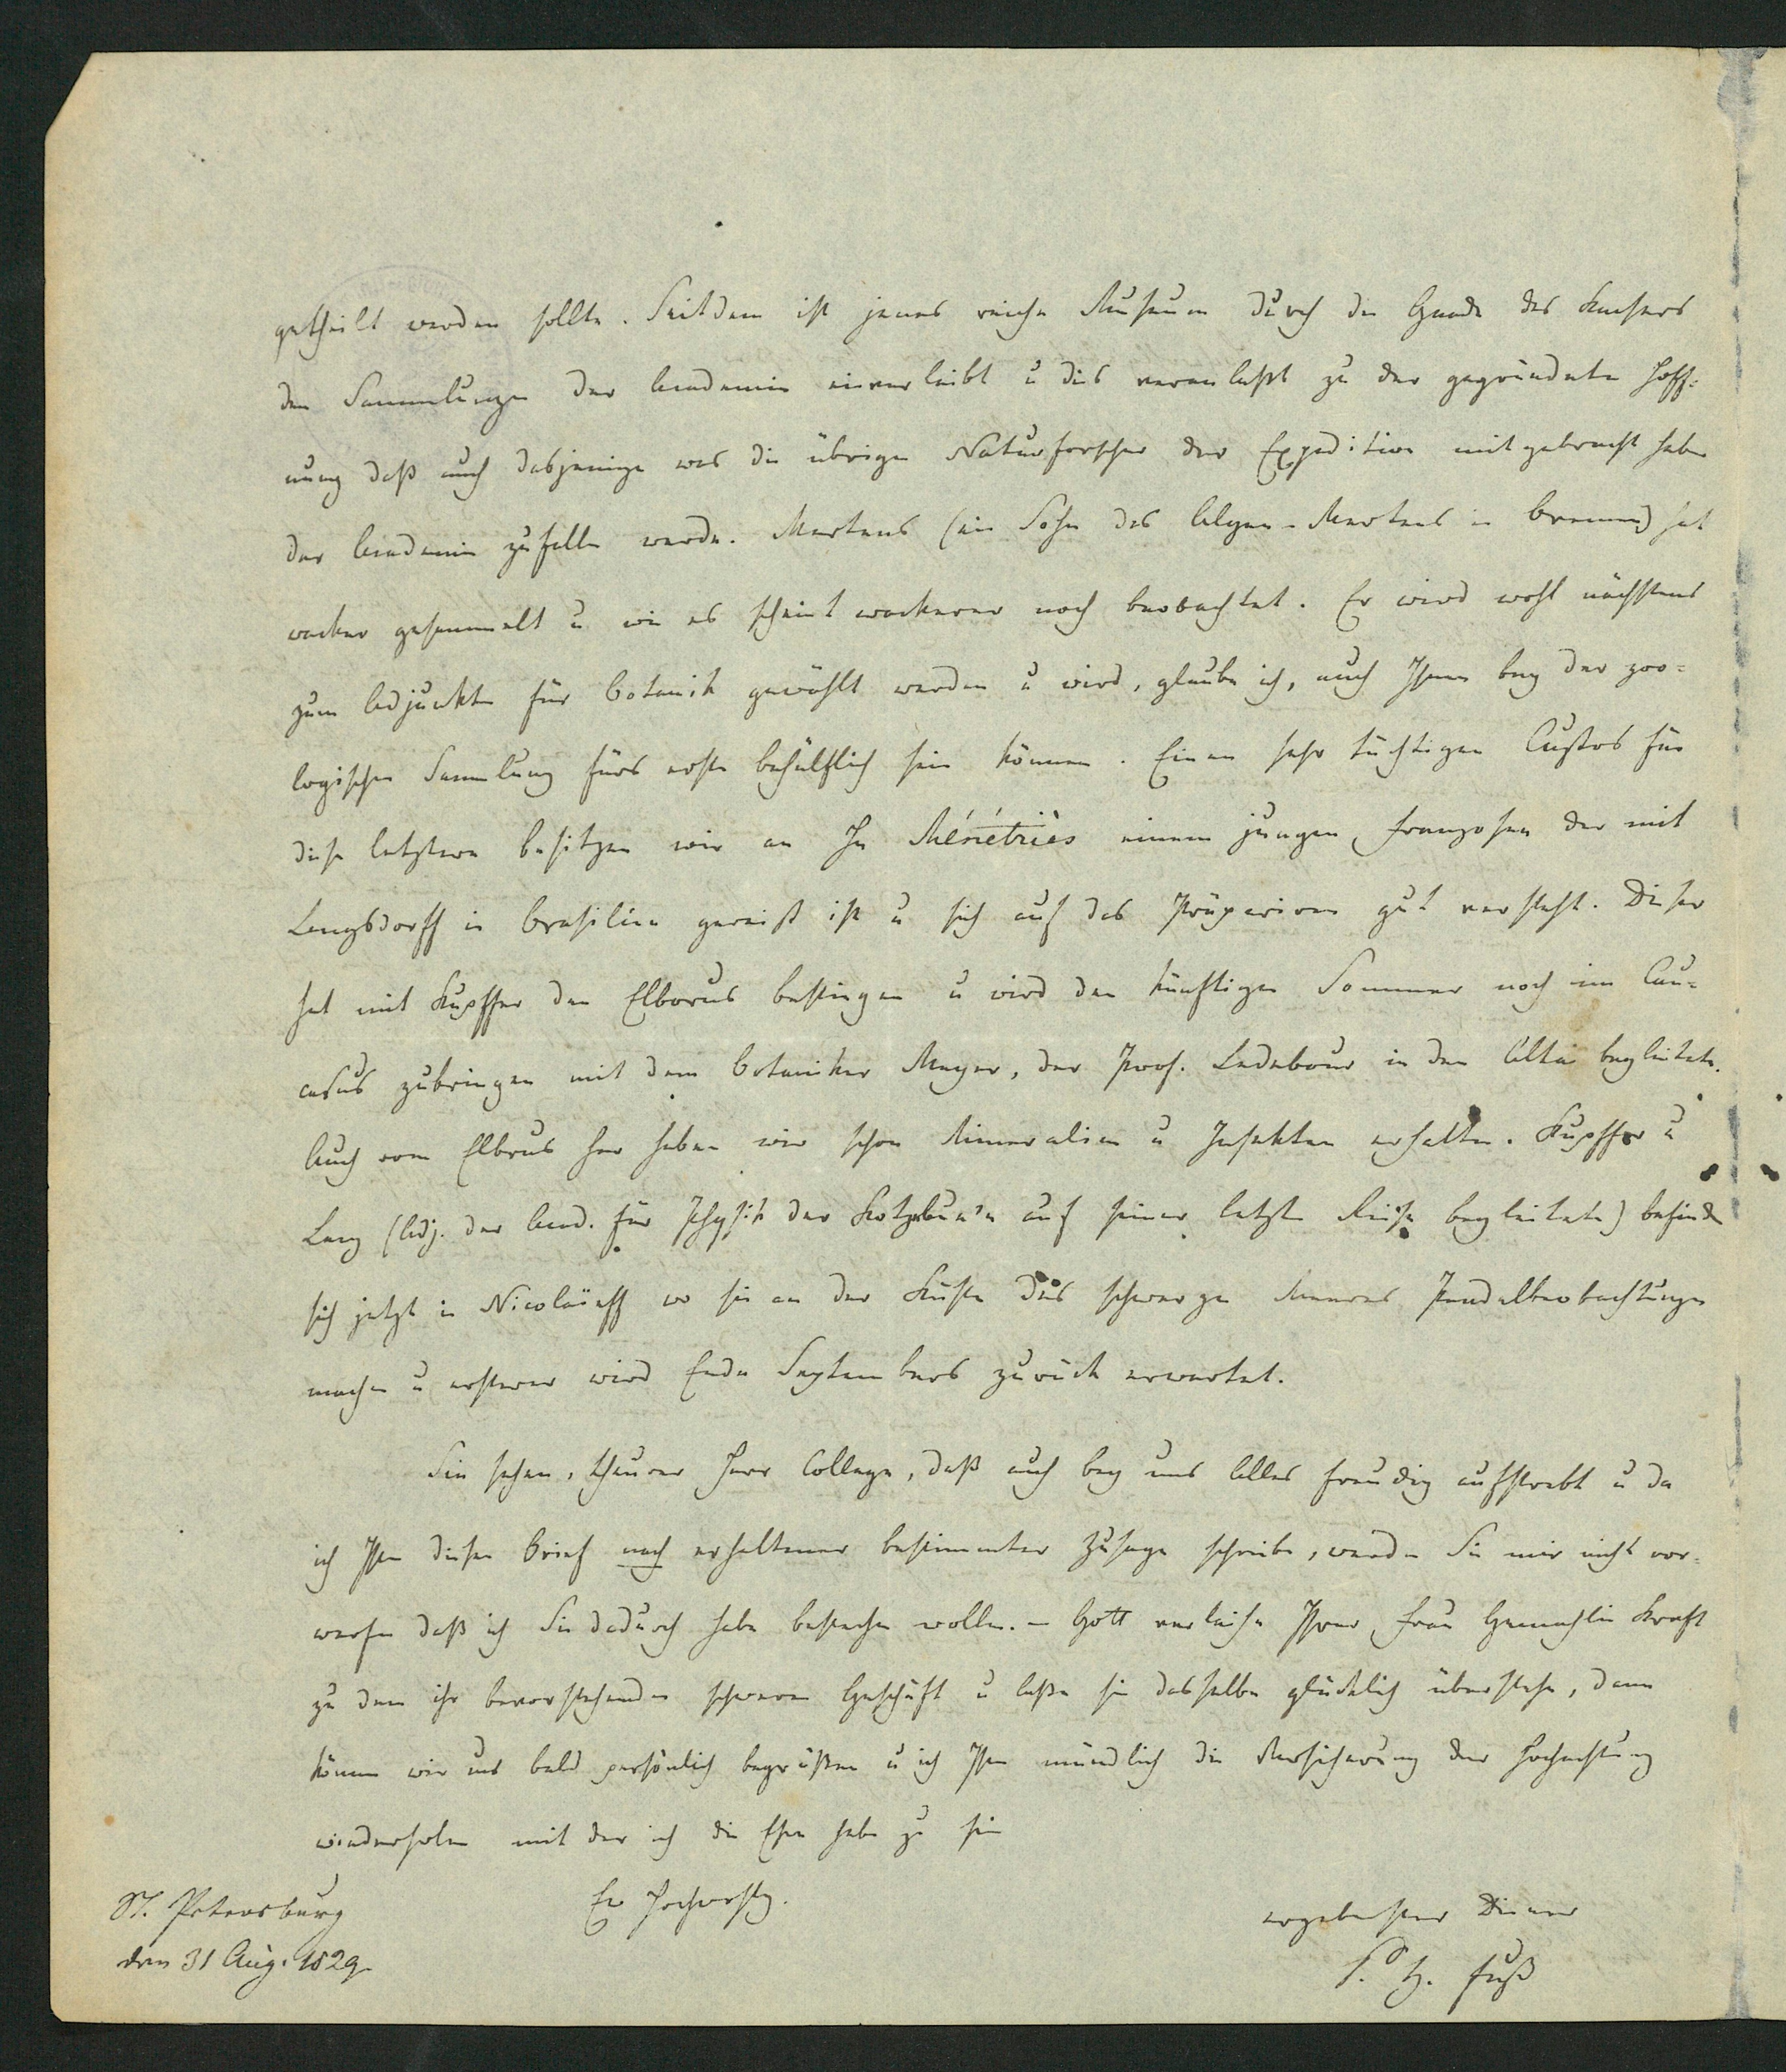 getheilt werden sollte. Seitdem ist jenes reiche Museum durch die Gnade des Kaisers
den Sammlungen der Academie einverleibt u dies veranlaßt zu der gegründeten Hoff-
nung daß auch dasjenige was die übrigen Naturforscher der Expedition mitgebracht haben
der Academie zufallen werde. Mertens (ein Sohn des Algen-Mertens in Bremen) hat
wacker gesammelt u wie es scheint wackerer noch beobachtet. Er wird wohl nächstens
zum Adjunkten für Botanik gewählt werden u wird, glaube ich, auch Ihnen bey der zoo-
logischen Sammlung fürs erste behülflich sein können. Einen sehr tüchtigen Custos für
diese letztere besitzen wir an Hn Ménétriès einem jungen Franzosen der mit
Langsdorff in Brasilien gereist ist u sich auf das Präpariren gut versteht. Dieser
hat mit Kupffer den Elborus bestiegen u wird den künftigen Sommer noch im Cau-
casus zubringen mit dem Botaniker Meyer, der Prof. Ledebour in den Altai begleitete.
Auch vom Elbrus her haben wir schon Mineralien u Insekten erhalten. Kupffer u
Lenz (Adj. der Acad. für Physik der Kotzebue'n auf seiner letzten Reise begleitete) befinden
sich jetzt in Nicolaieff wo sie an der Küste des schwarzen Meeres Pendelbeobachtungen
machen u ersterer wird Ende Septembers zurück erwartet.
Sie sehen, theurer Herr College, daß auch bey uns Alles freudig aufstrebt u da
ich Ihnen diesen Brief nach erhaltener bestimmter Zusage schreibe, werden Sie mir nicht vor-
werfen daß ich Sie dadurch habe bestechen wollen. – Gott verleihe Ihrer Frau Gemahlin Kraft
zu dem ihr bevorstehenden schweren Geschäft u laße sie dasselbe glücklich überstehen, dann
können wir uns bald persönlich begrüßen u ich Ihnen mündlich die Versicherung der Hochachtung
wiederholen mit der ich die Ehre habe zu sein
Ew Hochwohlg.
ergebenster Diener
P. H. Fuß
St. Petersburg
den 31 Aug. 1829.